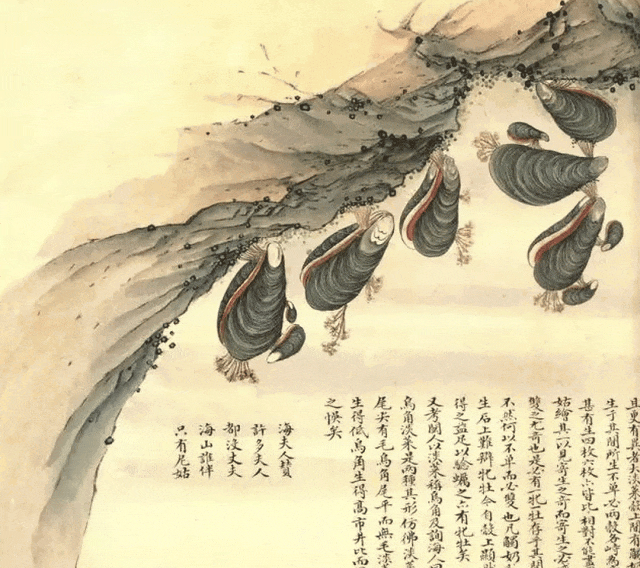 且更有異者大淡菜殼上間有觸奶
生于其間所生不單必兩殼各峙為
甚有生四枚六枚亦皆比相對不能畫
姑繪其一以見寄生之奇而寄生之必
雙之尤奇也是必有一牝一牡存乎其間
不然何以不單而必雙也凡觸奶
生石上難辨牝牡今自殼上顯
得之益足以驗蠣之亦有牝牡矣
又考閩人以淡菜稱烏角及詢海人曰
烏角淡菜是兩種其形仿佛淡菜
尾尖有毛烏角尾平而無毛淡菜
生得低烏角生得高市井比而
之悞矣
海夫人贊
許多夫人
都沒丈夫
海山誰伴
只有尼姑